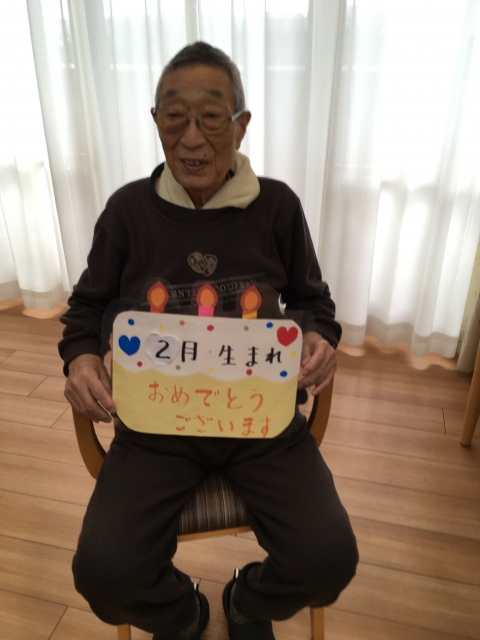 2月 生まれ
おめでとう
ございます